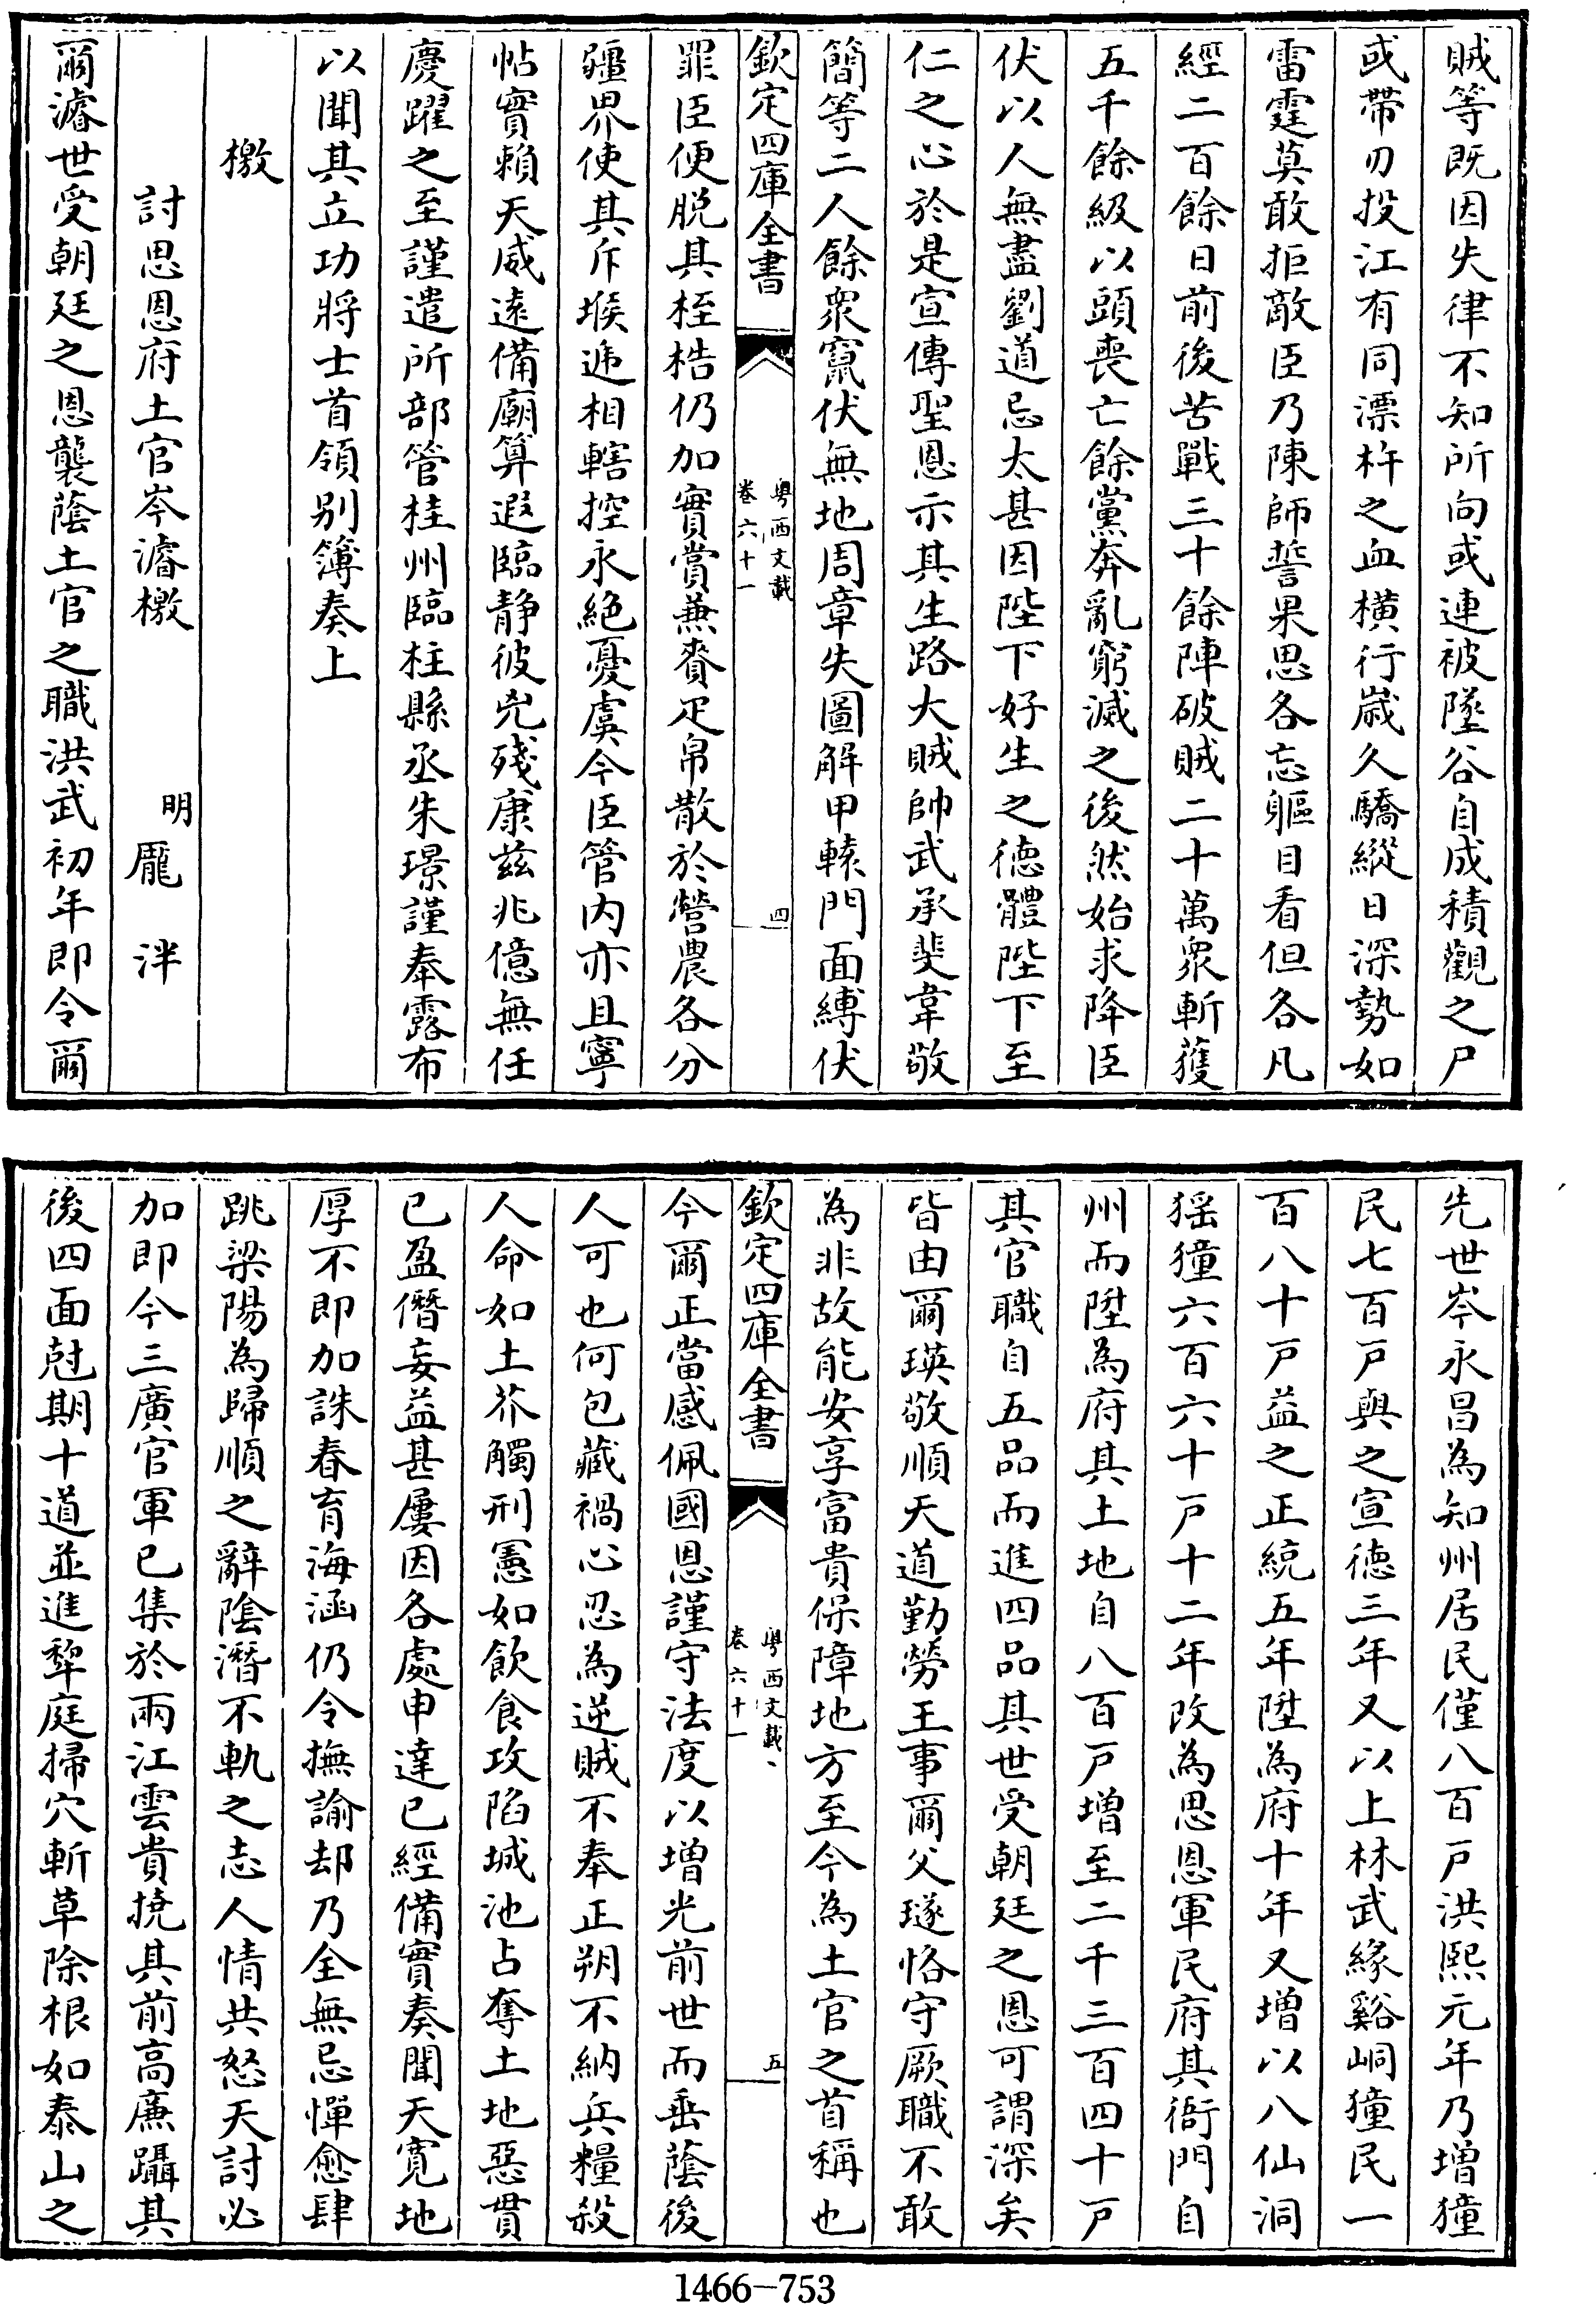 賊等既因失律不知所向或連被墜谷自成積觀之尸
或帶刃投江有同漂杵之血横行歳久驕縱日深勢如
雷霆莫敢拒敵臣乃陳師誓果思各忘軀目看但各凡
經二百餘日前後苦戰三十餘陣破賊二十萬衆斬獲
五千餘級以頭喪亡餘黨奔亂窮滅之後然始求降臣
伏以人無盡劉道忌太甚因陛下好生之徳體陛下至
仁之心於是宣傳聖恩示其生路大賊帥武承斐韋敬
簡等二人餘衆竄伏無地周章失圖解甲轅門面縛伏
欽定四庫全書
粤西文載
卷六十一
四
罪臣便脱其桎梏仍加實賞兼賚疋帛散於營農各分
疆界使其斥堠逓相轄控永絶憂虞今臣管内亦且寧
帖實賴天威遠備廟算遐臨静彼兇殘康兹兆億無任
慶躍之至謹遣所部管桂州臨桂縣丞朱璟謹奉露布
以聞其立功將士首領别簿奏上
檄
討思恩府土官岑濬檄
明龎泮
爾濬世受朝廷之恩襲蔭土官之職洪武初年即令爾
先世岑永昌為知州居民僅八百戸洪熙元年乃增獞
民七百戸與之宣徳三年又以上林武緣谿峒獞民一
百八十戸益之正統五年陞為府十年又增以八仙洞
猺獞六百六十戸十二年改為思恩軍民府其衙門自
州而陞為府其土地自八百戸增至二千三百四十戸
其官職自五品而進四品其世受朝廷之恩可謂深矣
皆由爾瑛敬順天道勤勞王事爾父璲恪守厥職不敢
為非故能安享富貴保障地方至今為土官之首稱也
欽定四庫全書
粤西文載
卷六十一
五
今爾正當感佩國恩謹守法度以增光前世而垂蔭後
人可也何包藏禍心忍為逆賊不奉正朔不納兵糧殺
人命如土芥觸刑憲如飲食攻陷城池占奪土地惡貫
已盈僭妄益甚屢因各處申達已經備實奏聞天寛地
厚不即加誅春育海涵仍令撫諭却乃全無忌憚愈肆
跳梁陽為歸順之辭隂潛不軌之志人情共怒天討必
加即今三廣官軍已集於兩江雲貴撓其前高亷躡其
後四面尅期十道並進犂庭掃穴斬草除根如泰山之
1466-753